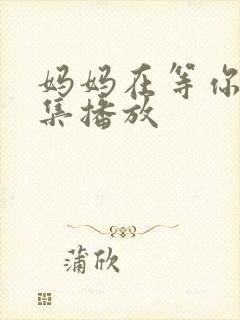 妈妈在等你
集播放
蒲欣